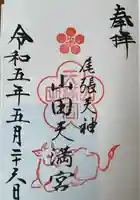 奉拝
尾張天神
山田天満宮
令和五年五月二十六日